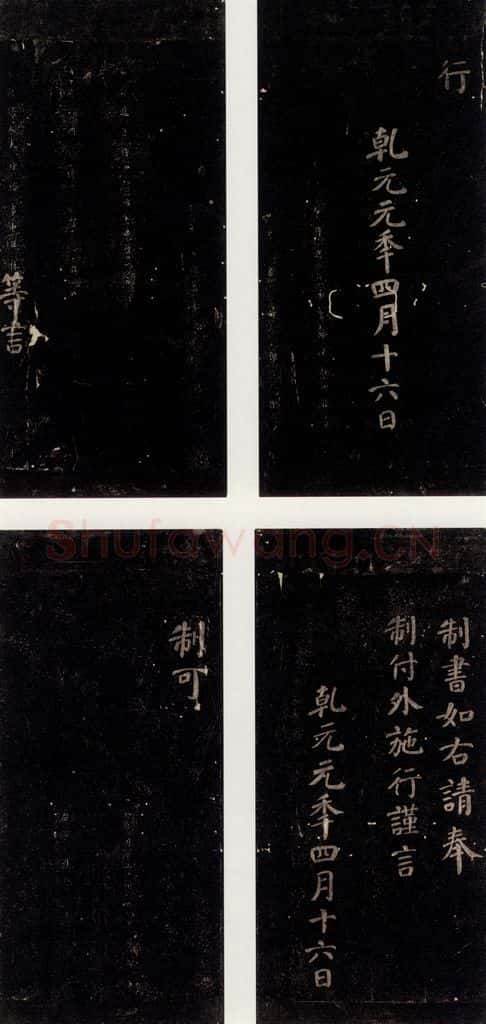 行
乹元元秊四月十六日
等言
制書如右請奉
制付外施行謹言
乹元元秊四月十六日
制可
Shufawang.CN